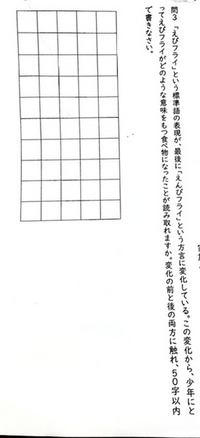 問３「えびフライ」という標準語の表現が、最後に「えんびフライ」という方言に変化している。この変化から、少年にと
ってえびフライがどのような意味をもつ食べ物になったことが読み取れますか。変化の前と後の両方に触れ、５０字以内
で書きなさい。